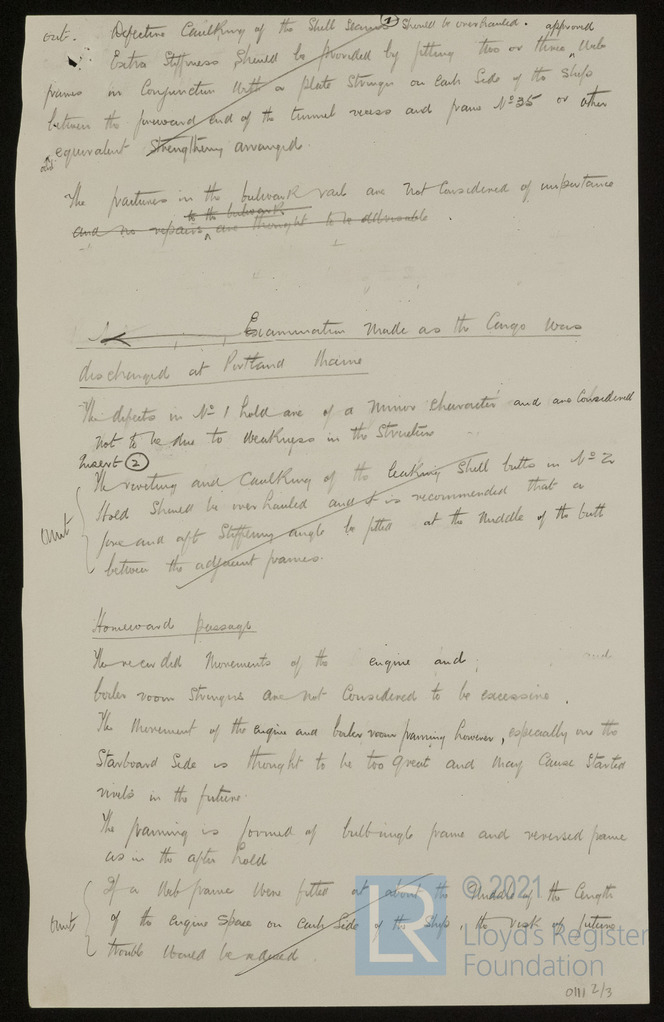 out. Defective Caulking of the Shell Seams ① Should be overhauled. approved
Extra Stiffness Should be provided by fitting two or three ^ Web
frames in Conjunction With a plate Stringer on each Side of the Ship
between the forward end of the tunnel recess and frame No 35 or other
equivalent Strengthening arranged.
The fractures in the bulwark rail are not Considered of importance
to the bulwark
and no repairs ^ are thought to be advisable.
Examination Made as the Cargo Was
discharged at Portland Maine
The defects in No 1 hold are of a Minor Character and are Considered
not to be due to Weakness in the Structure
Insert ②
The riveting and Caulking of the leaking Shell butts in No 2
Omit
Hold Should be overhauled and it is recommended that a
fore and aft Stiffening angle be fitted at the Middle of the butt
between the adjacent frames.
Homeward passage
The recorded Movements of the engine and
boiler room Stringers are not Considered to be excessive.
The Movement of the engine and boiler room framing however, especially on the
Starboard Side is thought to be too great and May Cause Started
rivets in the future.
The framing is formed of bulb angle frame and reversed frame
as in the after hold
If a Web frame Were fitted at about the Middle of the length
Omit
of the engine Space on each Side of the Ship, the risk of future
trouble Would be reduced.
© 2021
LR
Lloyd's Register
Foundation
0111 2/3